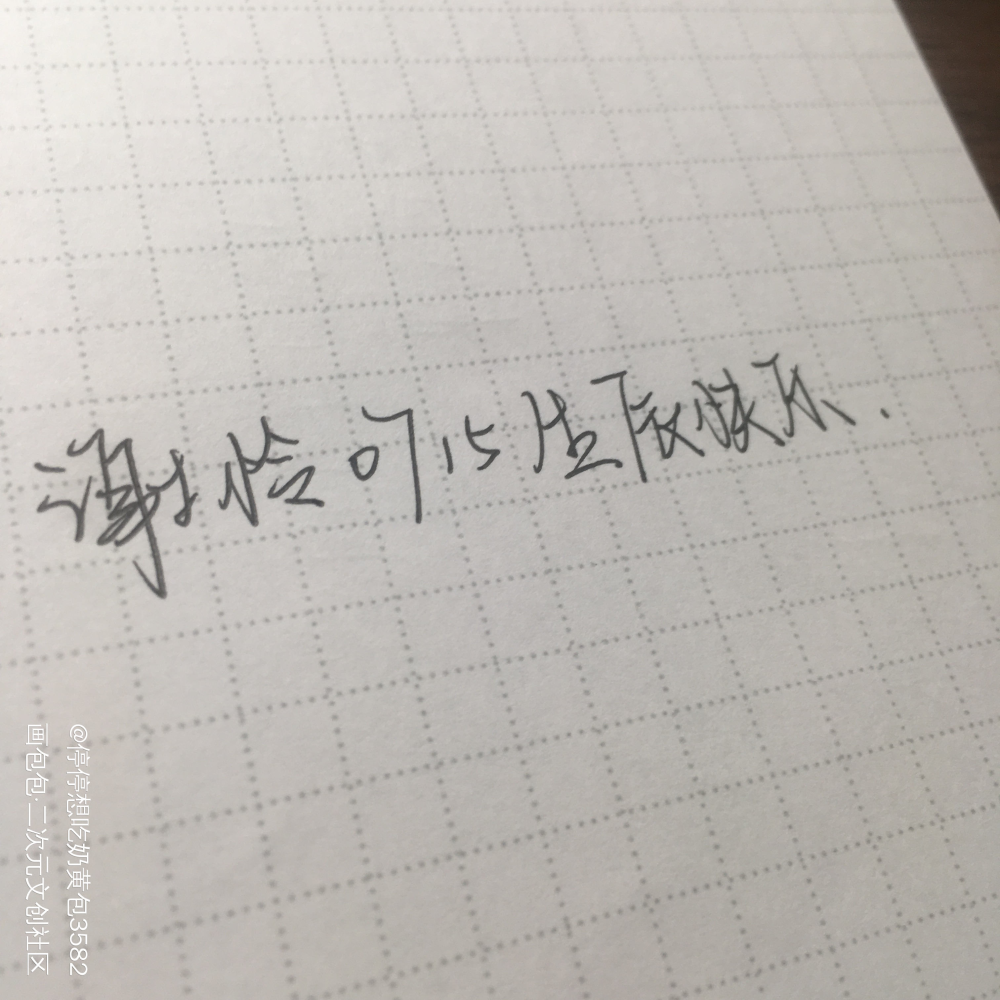 谭恰0715生辰快乐.
@停停想吃奶黄包3582
画包包·二次元文创社区